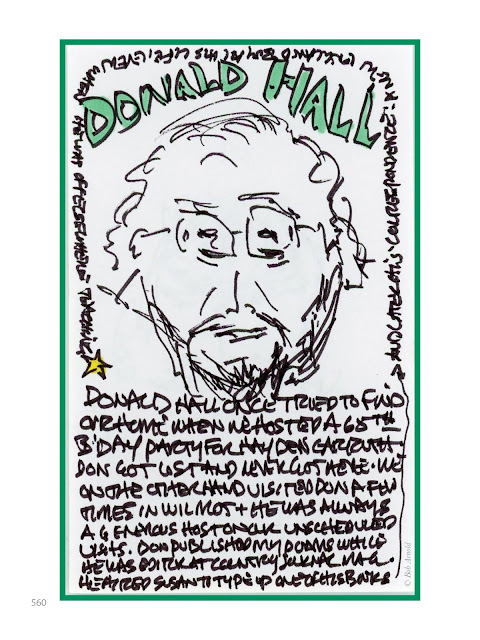 DONALD HALL
NEW ENGLAND ALL HIS LIFE, EVEN WHEN
HE WAS OFF ELSEWHERE TEACHING
DONALD HALL ONCE TRIED TO FIND
OUR HOME WHEN WE HOSTED A 65TH
B'DAY PARTY FOR HAYDEN CARRUTH.
DON GOT LOST AND NEVER GOT HERE. WE
ON THE OTHER HAND VISITED DON A FEW
TIMES IN WILMOT + HE WAS ALWAYS
A GENEROUS HOST ON OUR UNSCHEDULED
VISITS. DON PUBLISHED MY POEMS WHILE
HE WAS EDITOR AT COUNTRY JOURNAL MAG.
HE HIRED SUSAN TO TYPE UP ONE OF HIS BOOKS
AND LATER HIS CORRESPONDENCE.
© Bob Arnold
560